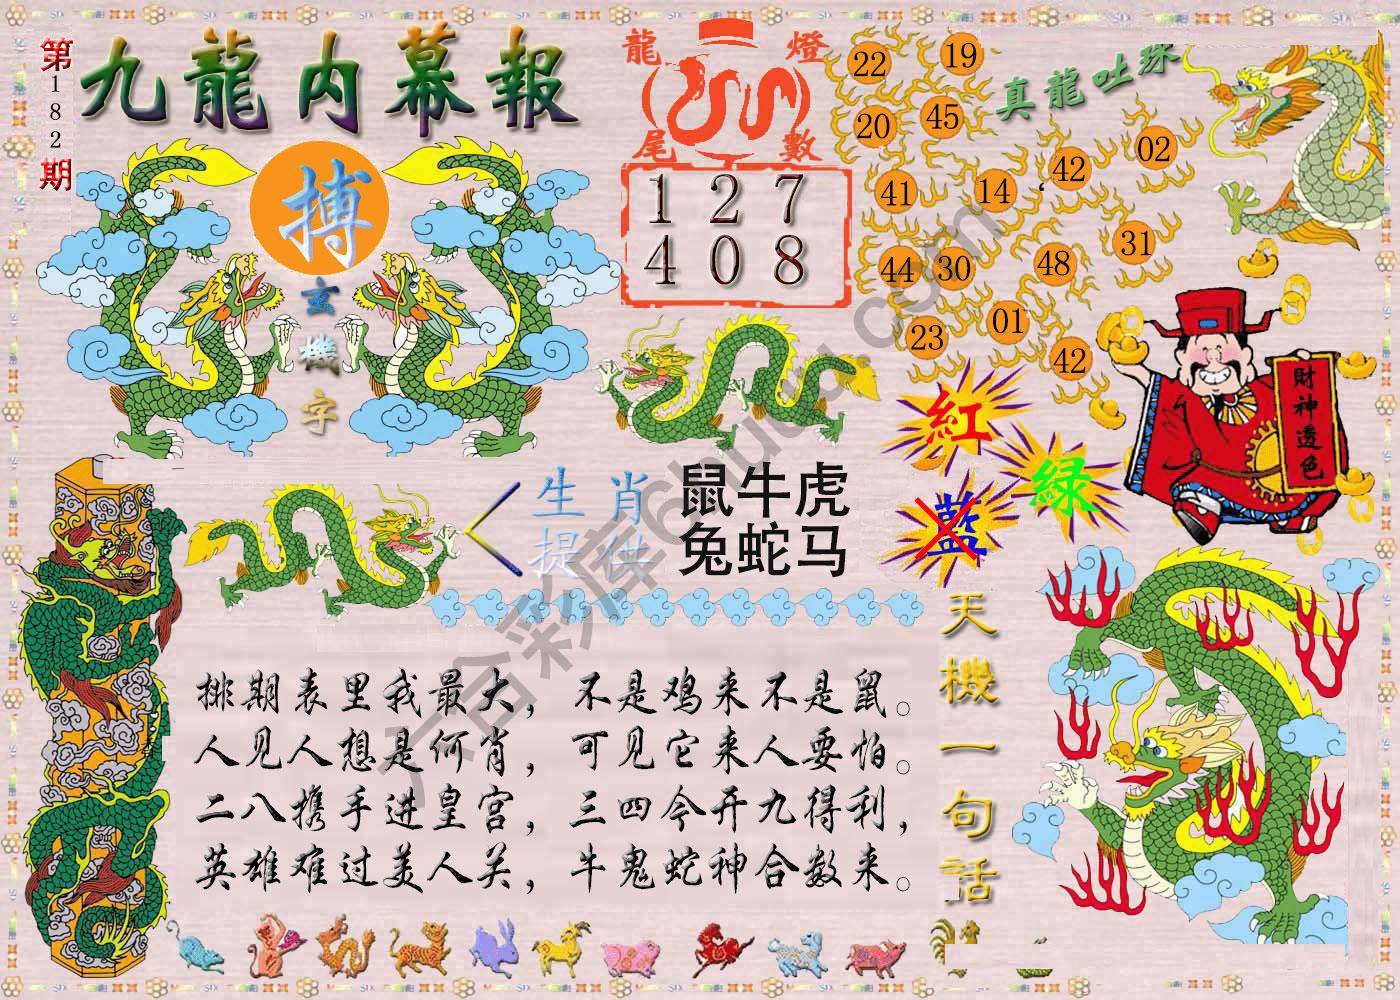 第182期
九龍内幕報
搏
玄機字
龍燈
尾數
1 2 7
4 0 8
真龍吐珠
22 19
20 45
41 14 42 02
44 30 48 31
23 01 42
財神透色
紅
藍
绿
生肖
提供
鼠牛虎
兔蛇马
天機一句話
排期表里我最大，不是鸡来不是鼠。
人见人想是何肖，可见它来人要怕。
二八携手进皇宫，三四今开九得利，
英雄难过美人关，牛鬼蛇神合数来。
六合彩库6huuu.com